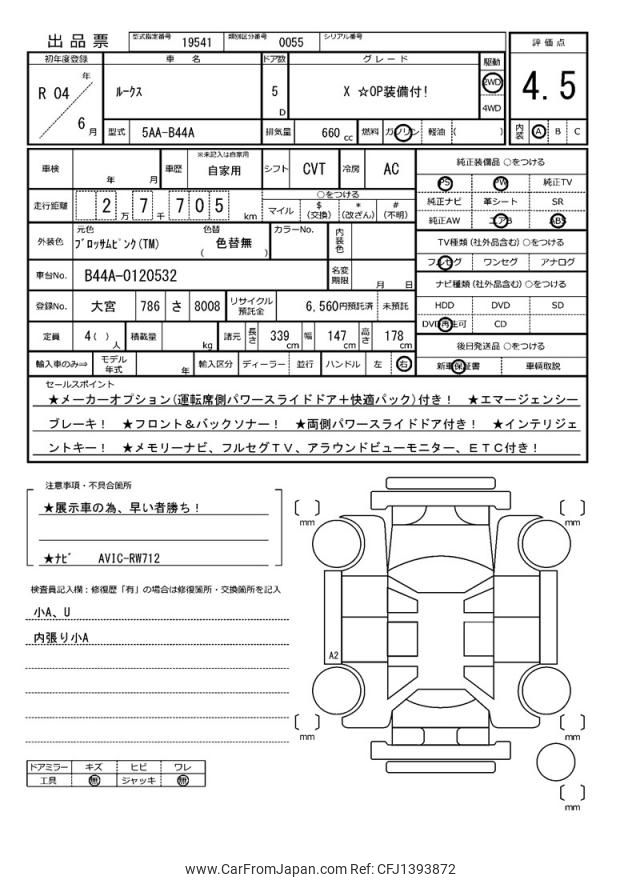 出品票 型式指定番号 19541 類別区分番号 0055 シリアル番号
評価点
4.5
内装 A B C
初年度登録 車名 ドア数 グレード 駆動
R 04 年 6 月 ルークス 5 D X ☆OP装備付! 2WD 4WD
型式 5AA-B44A 排気量 660 cc 燃料 ガソリン 軽油 ( )
車検 年 月 車歴 ※未記入は自家用 自家用 シフト CVT 冷房 AC
走行距離 2 万 7 千 7 0 5 km ○をつける
マイル $(交換) *(改ざん) #(不明)
外装色 元色 ブロッサムピンク(TM) 色替 ( 色替無 ) カラーNo. 内装色
車台No. B44A-0120532 名変期限 月 日
登録No. 大宮 786 さ 8008 リサイクル預託金 6,560円預託済 未預託
定員 4( ) 人 積載量 kg 諸元 長さ 339 cm 幅 147 cm 高さ 178 cm
輸入車のみ⇒ モデル年式 年 輸入区分 ディーラー 並行 ハンドル 左 右
純正装備品 ○をつける
PS PW 純正TV
純正ナビ 革シート SR
純正AW エアB ABS
TV種類(社外品含む)○をつける
フルセグ ワンセグ アナログ
ナビ種類(社外品含む)○をつける
HDD DVD SD
DVD再生可 CD
後日発送品 ○をつける
新車保証書 車輌取説
セールスポイント
★メーカーオプション(運転席側パワースライドドア+快適パック)付き! ★エマージェンシー
ブレーキ! ★フロント&バックソナー! ★両側パワースライドドア付き! ★インテリジェ
ントキー! ★メモリーナビ、フルセグTV、アラウンドビューモニター、ETC付き!
注意事項・不具合箇所
★展示車の為、早い者勝ち!
★ナビ AVIC-RW712
検査員記入欄:修復歴「有」の場合は修復箇所・交換箇所を記入
小A、U
内張り小A
ドアミラー キズ ヒビ ワレ
工具 無 ジャッキ 無
mm
mm
A2
mm
mm
mm
www.CarFromJapan.com Ref: CFJ1393872